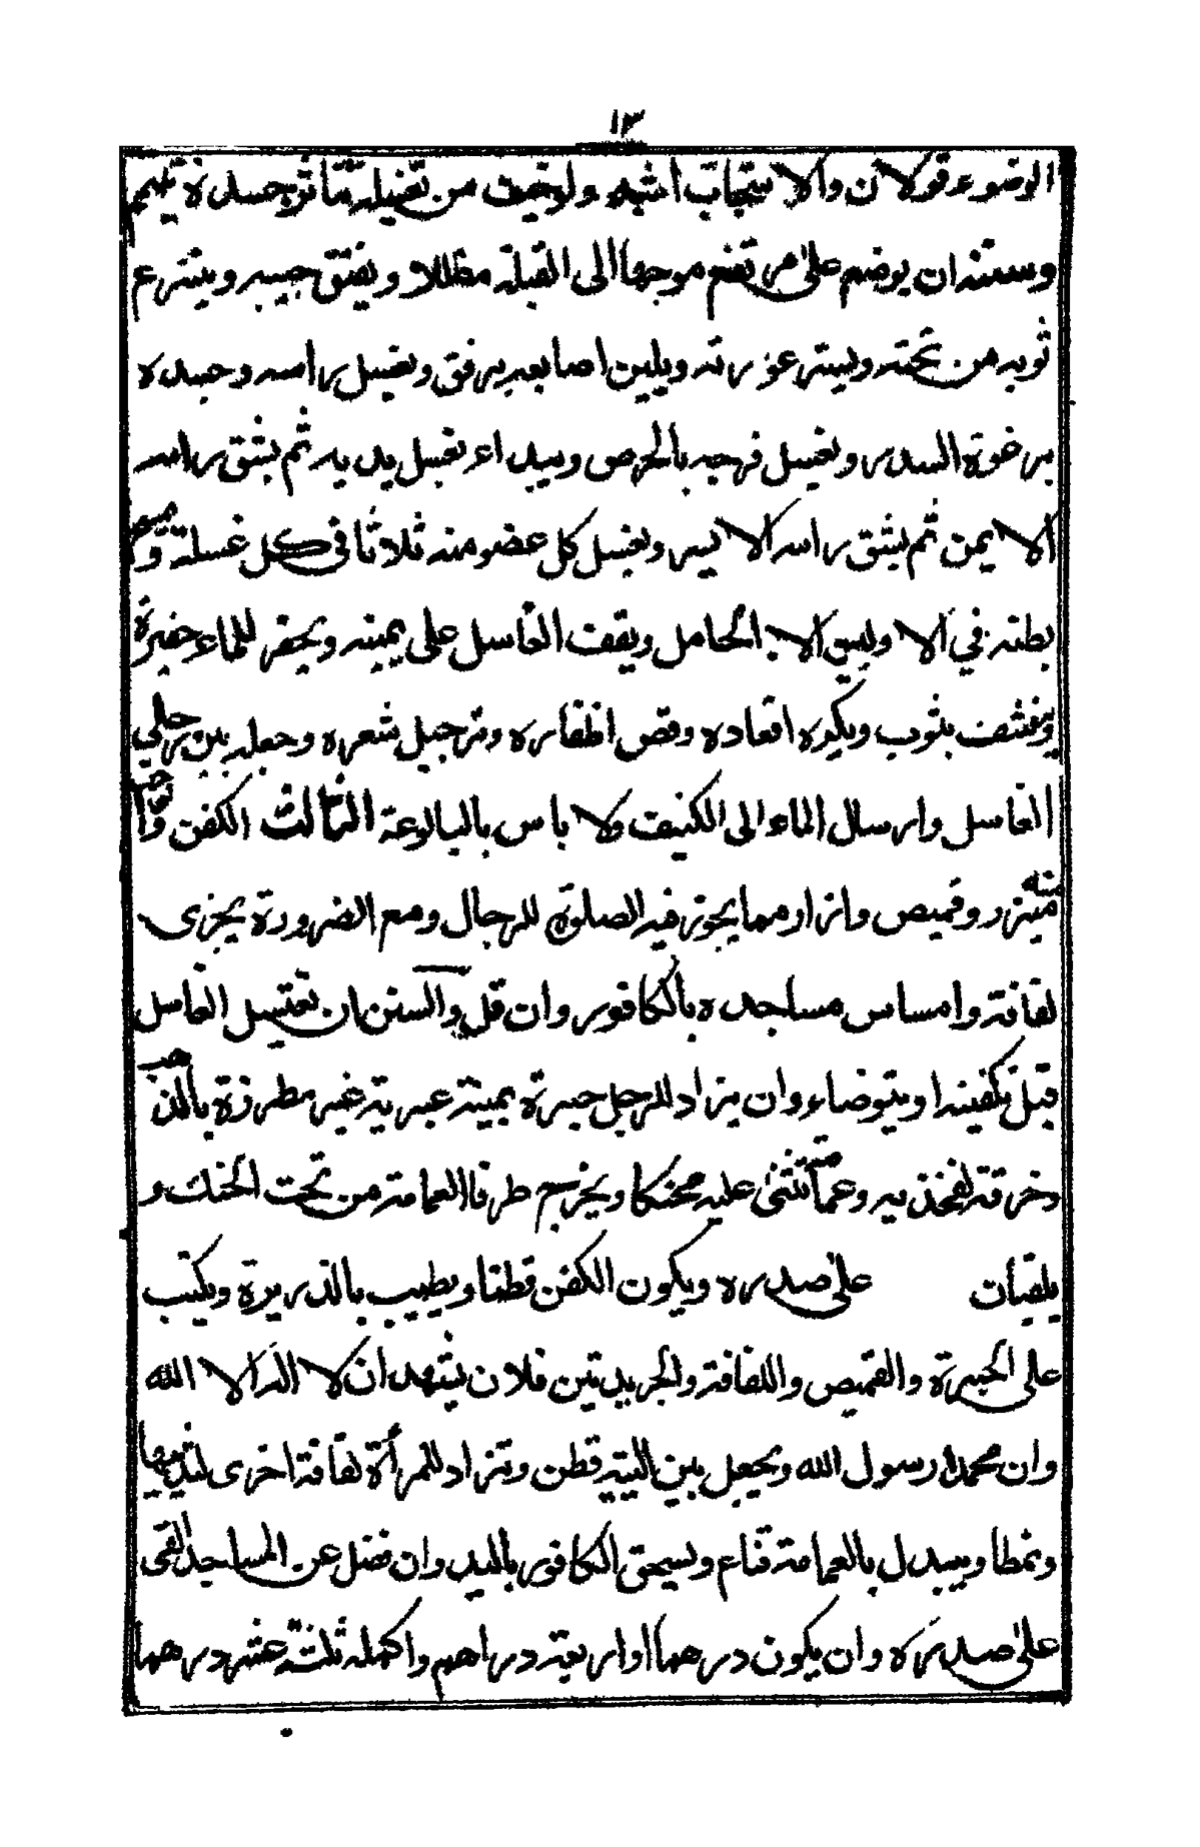 ١٣
الوضوء قولان والاستحباب اشبه ولو خيف من تغسيله تناثر جسده ييمم
وسننه ان يوضع على مرتفع موجها الى القبلة مظللا ويفتق جيبه وينزع
ثوبه من تحته ويستر عورته ويلين اصابعه برفق ويغسل راسه وجسده
برغوة السدر ويغسل فرجه بالحرض ويبداء بغسل يديه ثم بشق راسه
الايمن ثم بشق راسه الايسر ويغسل كل عضو منه ثلاثا في كل غسلة ومسح
بطنه في الاوليين الا الحامل ويقف الغاسل على يمينه ويحفر للماء حفيرة
وينشف بثوب ويكره اقعاده وقص اظفاره وترجيل شعره وجعله بين رجلي
الغاسل وارسال الماء الى الكنيف ولا باس بالبالوعة الثالث الكفن والواجب
منه ميزر وقميص وازار مما يجوز فيه الصلوة للرجال ومع الضرورة يجزى
لفافة وامساس مساجده بالكافور وان قل والسنن ان يغتسل الغاسل
قبل تكفينه او يتوضاء وان يزاد للرجل حبرة يمينة عبرية غير مطرزة بالذهب
وخرقة لفخذيه وعمامة تثنى عليه محنكا ويخرج طرفا العمامة من تحت الحنك و
يلقيان على صدره ويكون الكفن قطنا ويطيب بالذريرة ويكتب
على الحبرة والقميص واللفافة والجريدتين فلان يشهد ان لا اله الا الله
وان محمدا رسول الله ويجعل بين اليتيه قطن وتزاد للمرأة لفافة اخرى لثدييها
ونمطا ويبدل بالعمامة قناع ويسحق الكافور باليد وان فضل عن المساجد القى
على صدره وان يكون درهما او اربعة دراهم واكمله ثلثة عشر درهما